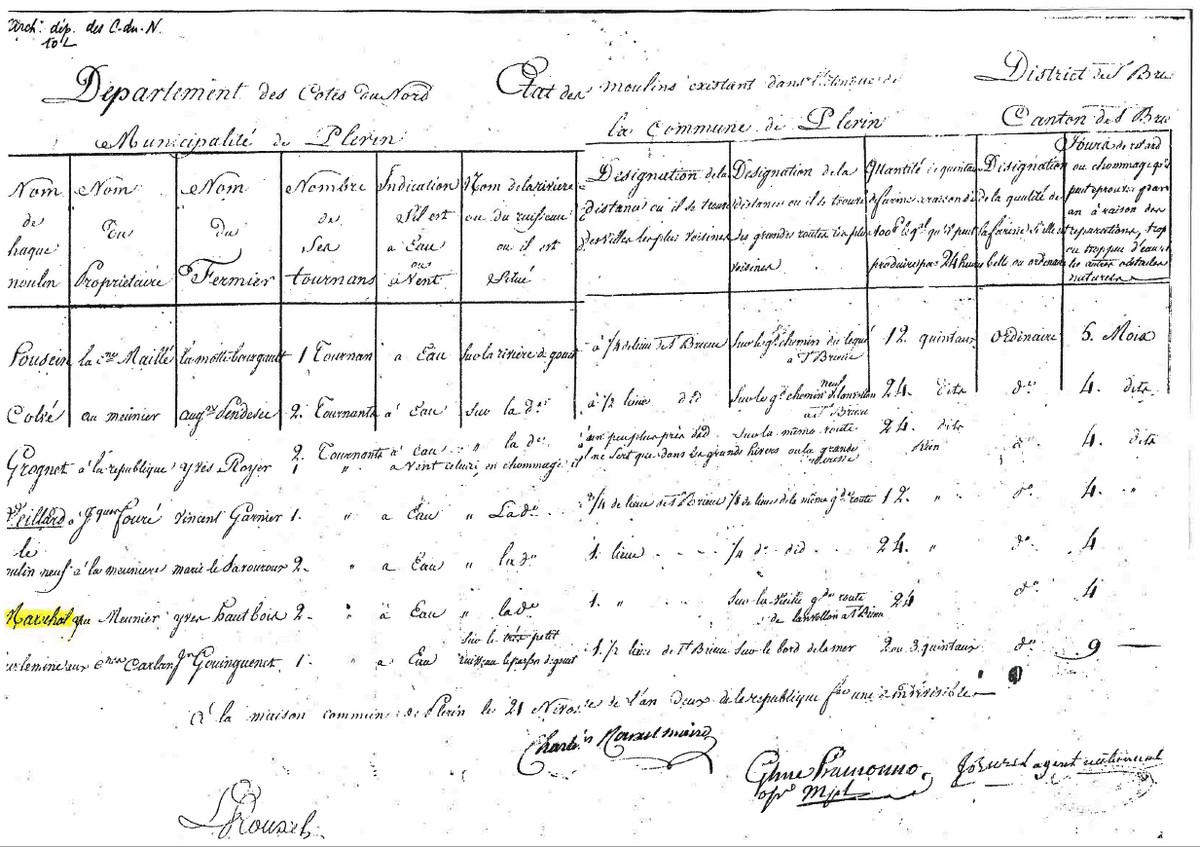 Arch. dép. des C.-du-N.
10 L
Département des Cotes du Nord
Etat des moulins existant dans
District de St Brieu
Municipalité de Plerin
la Commune de Plerin
Canton de St Brieu
Nom de chaque moulin
Nom du Propriétaire
Nom du Fermier
Nombre de Ses tournans
Indication S'il est a Eau ou a Vent
Nom de la rivière ou du ruisseau ou il est Situé
Désignation de la distance ou il se trouve des villes les plus voisines
Désignation de la distance ou il se trouve des grandes routes les plus voisines
Quantité de quintaux de farine a raison de 100# le ql qu'il peut produire par 24 heures
Désignation de la qualité de la farine si elle est belle ou ordinaire
Jours de retard ou chommage qu'il peut eprouver par an à raison des reparations, trop ou trop peu d'eau et les autres obstacles naturels
Pousein la cne Maillé la motte bourgault 1 Tournan a Eau Sur la rivière de gouet à 1/4 de lieu de St Brieu Sur le gd chemin du legué à St Brieu 12 quintaux Ordinaire 5 Mois
Colvé au meunier 2 Tournants à Eau Sur la do à 1/2 lieue did Sur le gd chemin neuf de lanvollon à St Brieu 24 dits do 4 dits
Grognet à la republique yves Royer 2 Tournants à eau " la do un peu plus près did Sur la même route 24 dits do 4 dits
1 " a Vent celui ci en chommage il ne sert que dans les grands hivers ou la grande Rien
Veillard à Jques fouré Vincent Garnier 1 " a Eau " La do 3/4 de lieue de St Brieu 1/4 de lieue de la même gde route 12 " do 4 "
le
moulin neuf à la meuniere marie le Sarouroux 2 " a Eau " la do 1 lieue 1/4 do did 24 " do 4
Marechal au Meunier yves hautbois 2 " à Eau " la do 1 " Sur la vieille gde route de lanvollon a St Brieu 24 do 4
1 " a Eau Sur le très petit ruisseau 1 1/2 lieue de St Brieu Sur le bord de la mer 2 ou 3 quintaux do 9
A la maison commune de Plerin le 21 Nivose de l'an deux de la republique fse une & indivisible
Charles maire
agent national
Rouxel